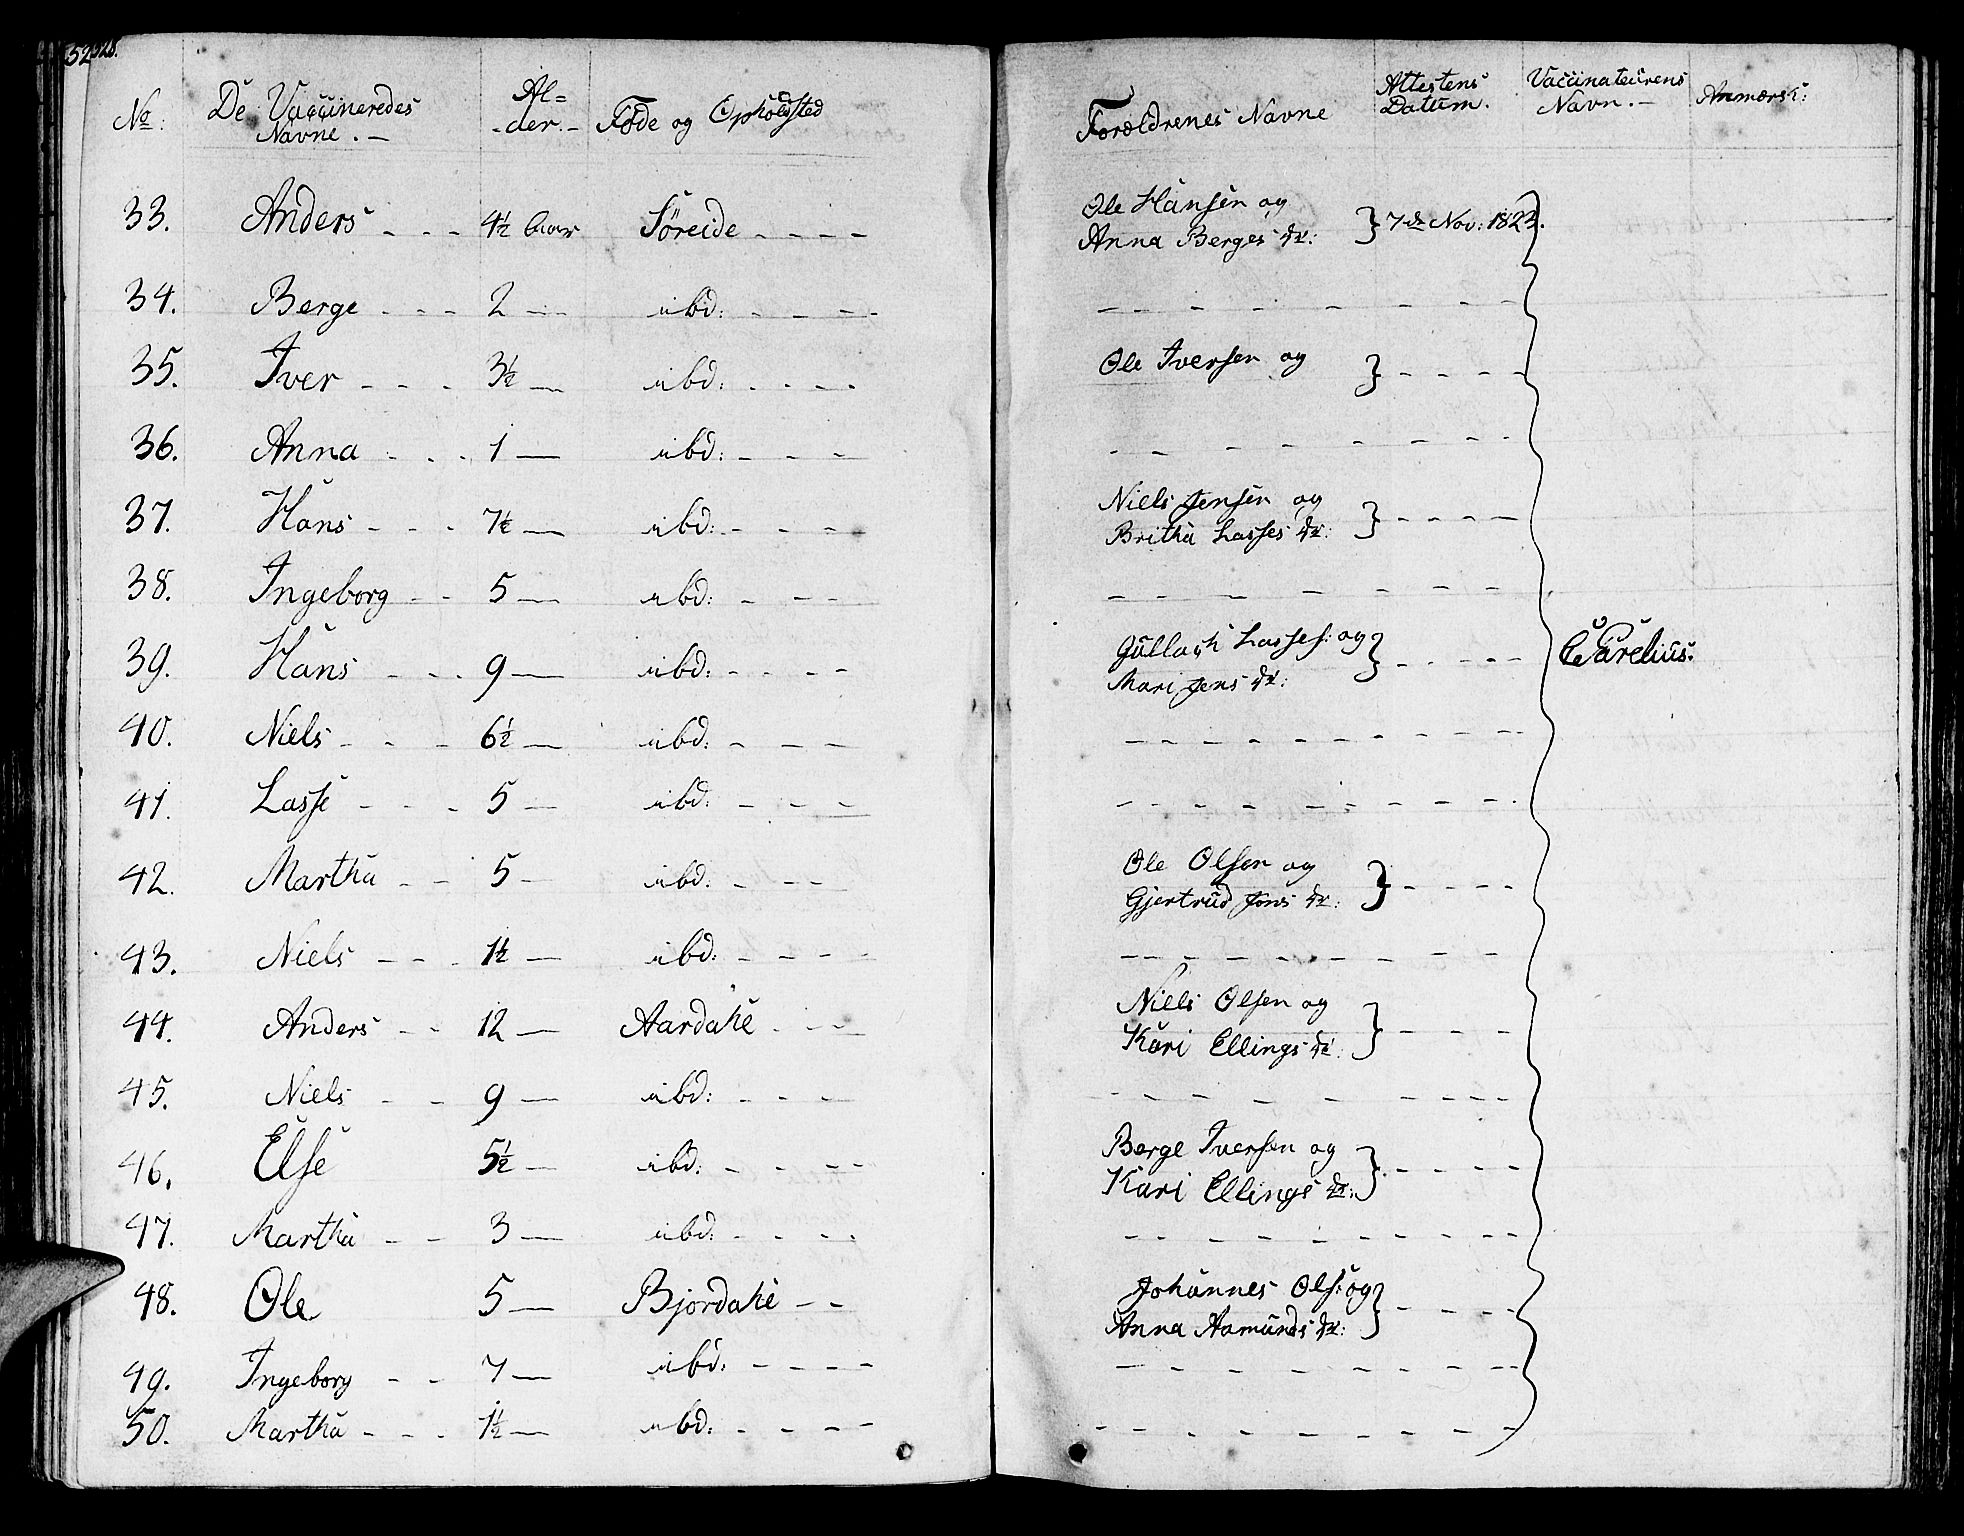 No: De Vaccineredes Navne. — Al= der. — Føde og Opholdsted Forældrenes Navne Attestens Datum. Vaccinateurens Navn. — Anmærk:
33. Anders - - - 4½ Aar Søreide - - - - Ole Hansen og
Anna Berges dr: } 7de Nov: 1823.
34. Berge - - - 2 — ibd: - - - -
35. Iver - - - 3½ — ibd: - - - - Ole Iversen og } - - - -
36. Anna - - - 1 — ibd: - - - -
37. Hans - - - 7½ — ibd: - - - - Niels Jensen og
Britha Lasses dr: } - - - -
38. Ingeborg - - 5 — ibd: - - - -
39. Hans - - - 9 — ibd: - - - - Gullach Lasses: og
Mari Jens dr: } - - - -
40. Niels - - - 6½ — ibd: - - -
41. Lasse - - - 5 — ibd: - - -
42. Martha - - 5 — ibd: - - - Ole Olsen og
Gjertrud Jons dr: } - - - -
43. Niels - - - 1½ — ibd: - - - -
44. Anders - - 12 — Aardahl - - - Niels Olsen og
Kari Ellings dr: } - - - -
45. Niels - - 9 — ibd: - - - -
46. Else 5½ — ibd: - - - - Berge Iversen og
Kari Ellings dr: } - - - -
47. Martha - - 3 — ibd: - - - -
48. Ole 5 — Bjordahl - - Johannes Ols: og
Anna Aamunds dr: } - - - -
49. Ingeborg - - 7 — ibd: - - - -
50. Martha - - - 1½ — ibd: - - - -